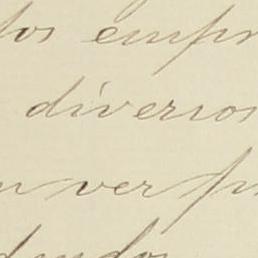 os empr
diversos
n ver pr
dendos